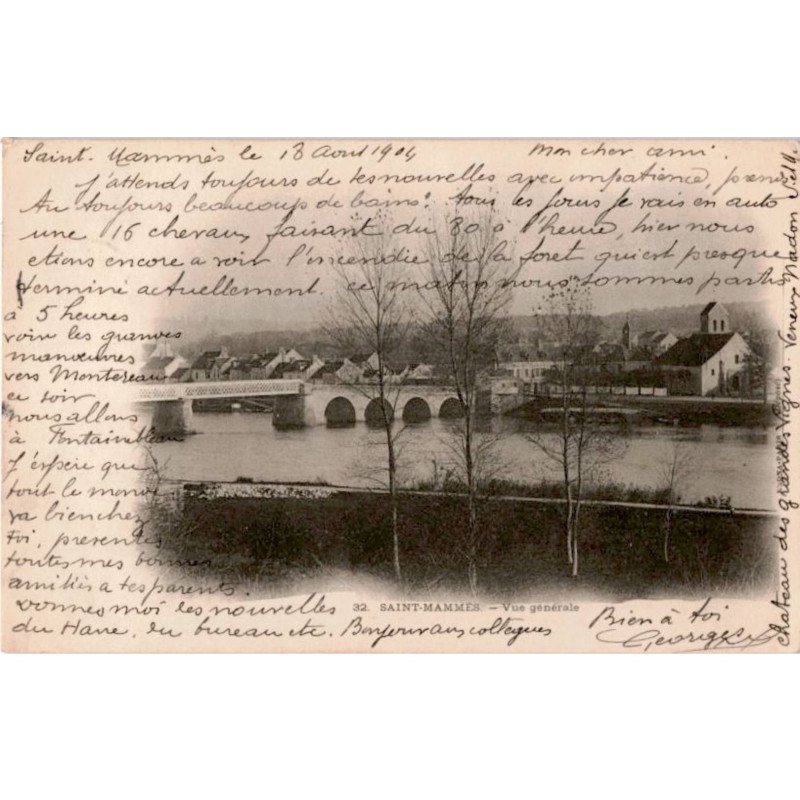 Saint-Mammès le 18 Aout 1904 Mon cher ami.
J'attends toujours de tes nouvelles avec impatience, prends
tu toujours beaucoup de bains? Tous les jours je vais en auto
une 16 chevaux, faisant du 80 à l'heure, hier nous
etions encore a voir l'incendie de la foret qui est presque
terminé actuellement ce matin nous sommes partis
à 5 heures
voir les grandes
manœuvres
vers Montereau
ce soir
nous allons
à Fontainebleau
J'espère que
tout le monde
va bien chez
toi, presentes
toutes mes bonnes
amitiés a tes parents.
Donnes moi les nouvelles
du Havre, du bureau etc. Bonjour aux collegues
32. SAINT-MAMMÈS. — Vue générale
Bien à toi
Georges
chateau des grandes Veneux Nadon